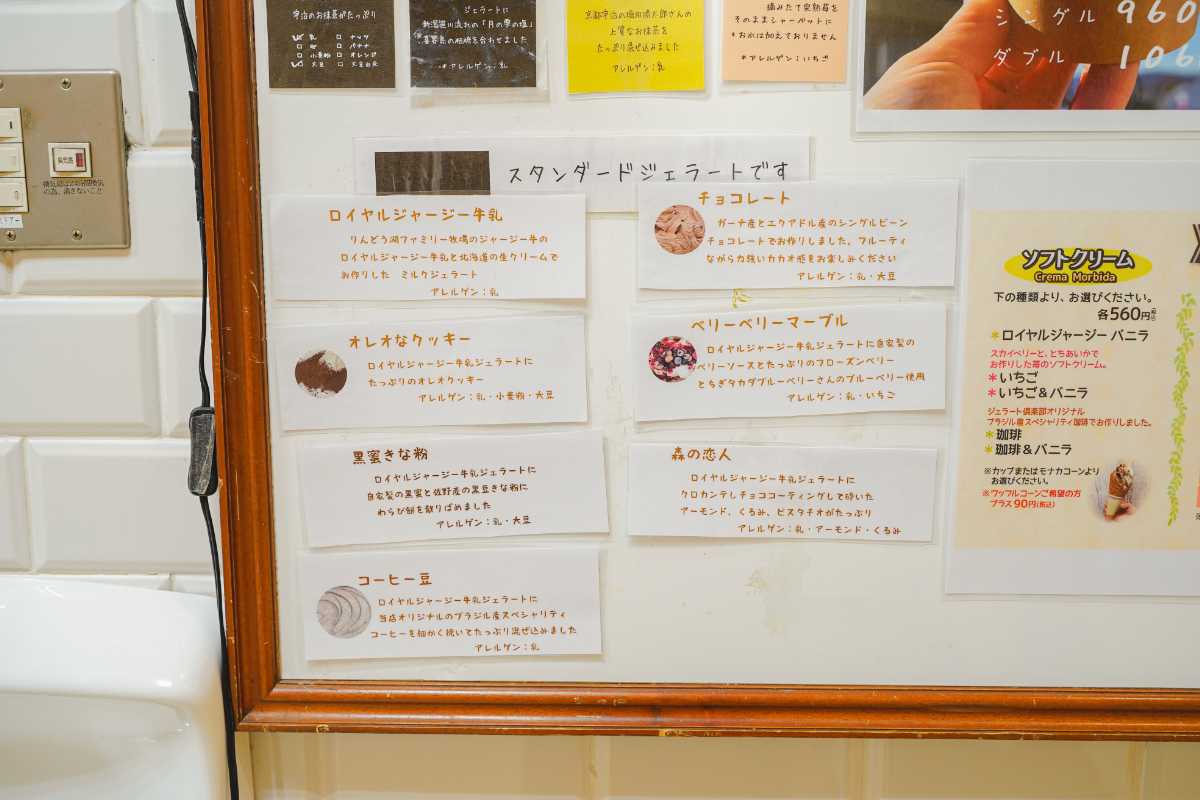 宇治のお抹茶がたっぷり
乳 ナッツ
バナナ
小麦粉 オレンジ
大豆
ジェラートに
新潟笹川流れの「月の雫の塩」
喜界島の粗糖を合わせました
*アレルゲン:乳
上質なお抹茶を
たっぷり混ぜ込みました
アレルゲン:乳
摘みたて完熟苺を
そのままシャーベットに
*お水は加えておりません
*アレルゲン:いちご
シングル 960
ダブル 106
スタンダードジェラートです
ロイヤルジャージー牛乳
りんどう湖ファミリー牧場のジャージー牛の
ロイヤルジャージー牛乳と北海道の生クリームで
お作りした ミルクジェラート
アレルゲン:乳
オレオなクッキー
ロイヤルジャージー牛乳ジェラートに
たっぷりのオレオクッキー
アレルゲン:乳・小麦粉・大豆
黒蜜きな粉
ロイヤルジャージー牛乳ジェラートに
自家製の黒蜜と佐野産の黒豆きな粉に
わらび餅を散りばめました
アレルゲン:乳・大豆
コーヒー豆
ロイヤルジャージー牛乳ジェラートに
当店オリジナルのブラジル産スペシャリティ
コーヒーを細かく挽いてたっぷり混ぜ込みました
アレルゲン:乳
チョコレート
ガーナ産とエクアドル産のシングルビーン
チョコレートでお作りしました。フルーティ
ながら力強いカカオ感をお楽しみください
アレルゲン:乳・大豆
ベリーベリーマーブル
ロイヤルジャージー牛乳ジェラートに自家製の
ベリーソースとたっぷりのフローズンベリー
とちぎタカダブルーベリーさんのブルーベリー使用
アレルゲン:乳・いちご
森の恋人
ロイヤルジャージー牛乳ジェラートに
クロカンテしチョココーティングして砕いた
アーモンド、くるみ、ピスタチオがたっぷり
アレルゲン:乳・アーモンド・くるみ
ソフトクリーム
Crema Morbida
下の種類より、お選びください。
各560円
*ロイヤルジャージー バニラ
スカイベリーと、とちあいかで
お作りした苺のソフトクリーム。
*いちご
*いちご&バニラ
ジェラート倶楽部オリジナル
ブラジル産スペシャリティ珈琲でお作りしました。
*珈琲
*珈琲&バニラ
※カップまたはモナカコーンより
お選びください。
※ワッフルコーンご希望の方
プラス90円(税込)